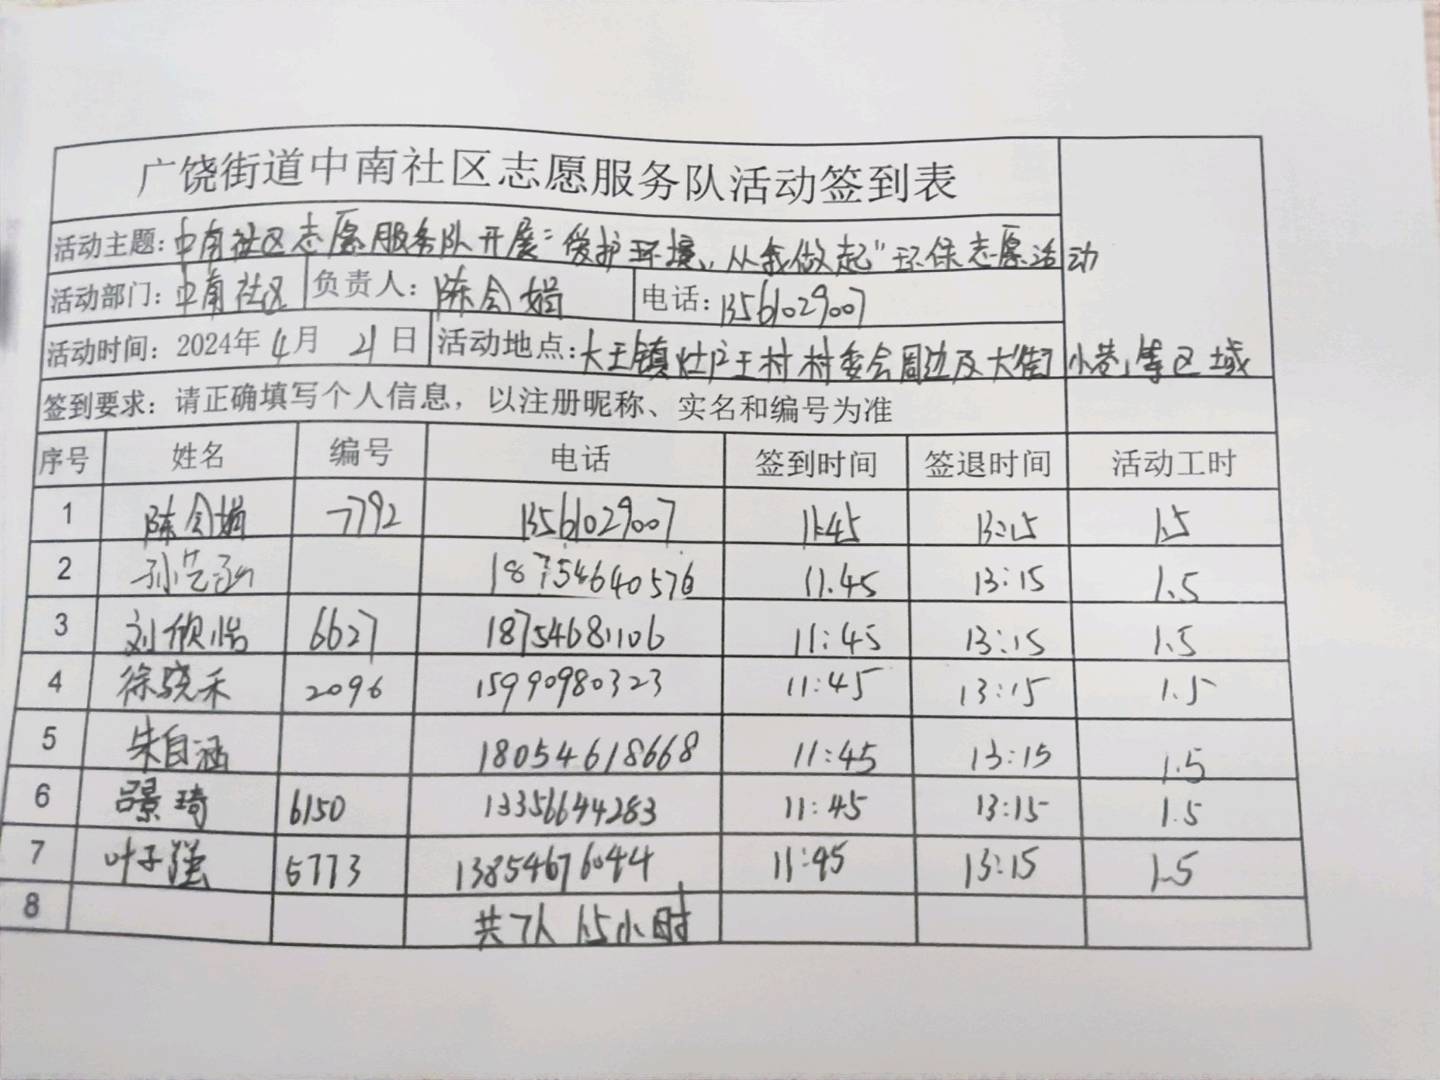 广饶街道中南社区志愿服务队活动签到表
活动主题：中南社区志愿服务队开展“爱护环境，从我做起”环保志愿活动
活动部门：中南社区 负责人：陈会娟 电话：13561029007
活动时间：2024年4月21日 活动地点：大王镇灶户王村村委会周边及大街小巷，等区域
签到要求：请正确填写个人信息，以注册昵称、实名和编号为准
序号 姓名 编号 电话 签到时间 签退时间 活动工时
1 陈会娟 7792 13561029007 11:45 13:15 1.5
2 孙艺涵 18754640576 11.45 13:15 1.5
3 刘欣怡 6627 18754681106 11:45 13:15 1.5
4 徐骁禾 2096 15990980323 11:45 13:15 1.5
5 朱自涵 18054618668 11:45 13:15 1.5
6 吕景琦 6150 13356644283 11:45 13:15 1.5
7 叶子强 5773 13854676044 11:45 13:15 1.5
8 共7人 1.5小时